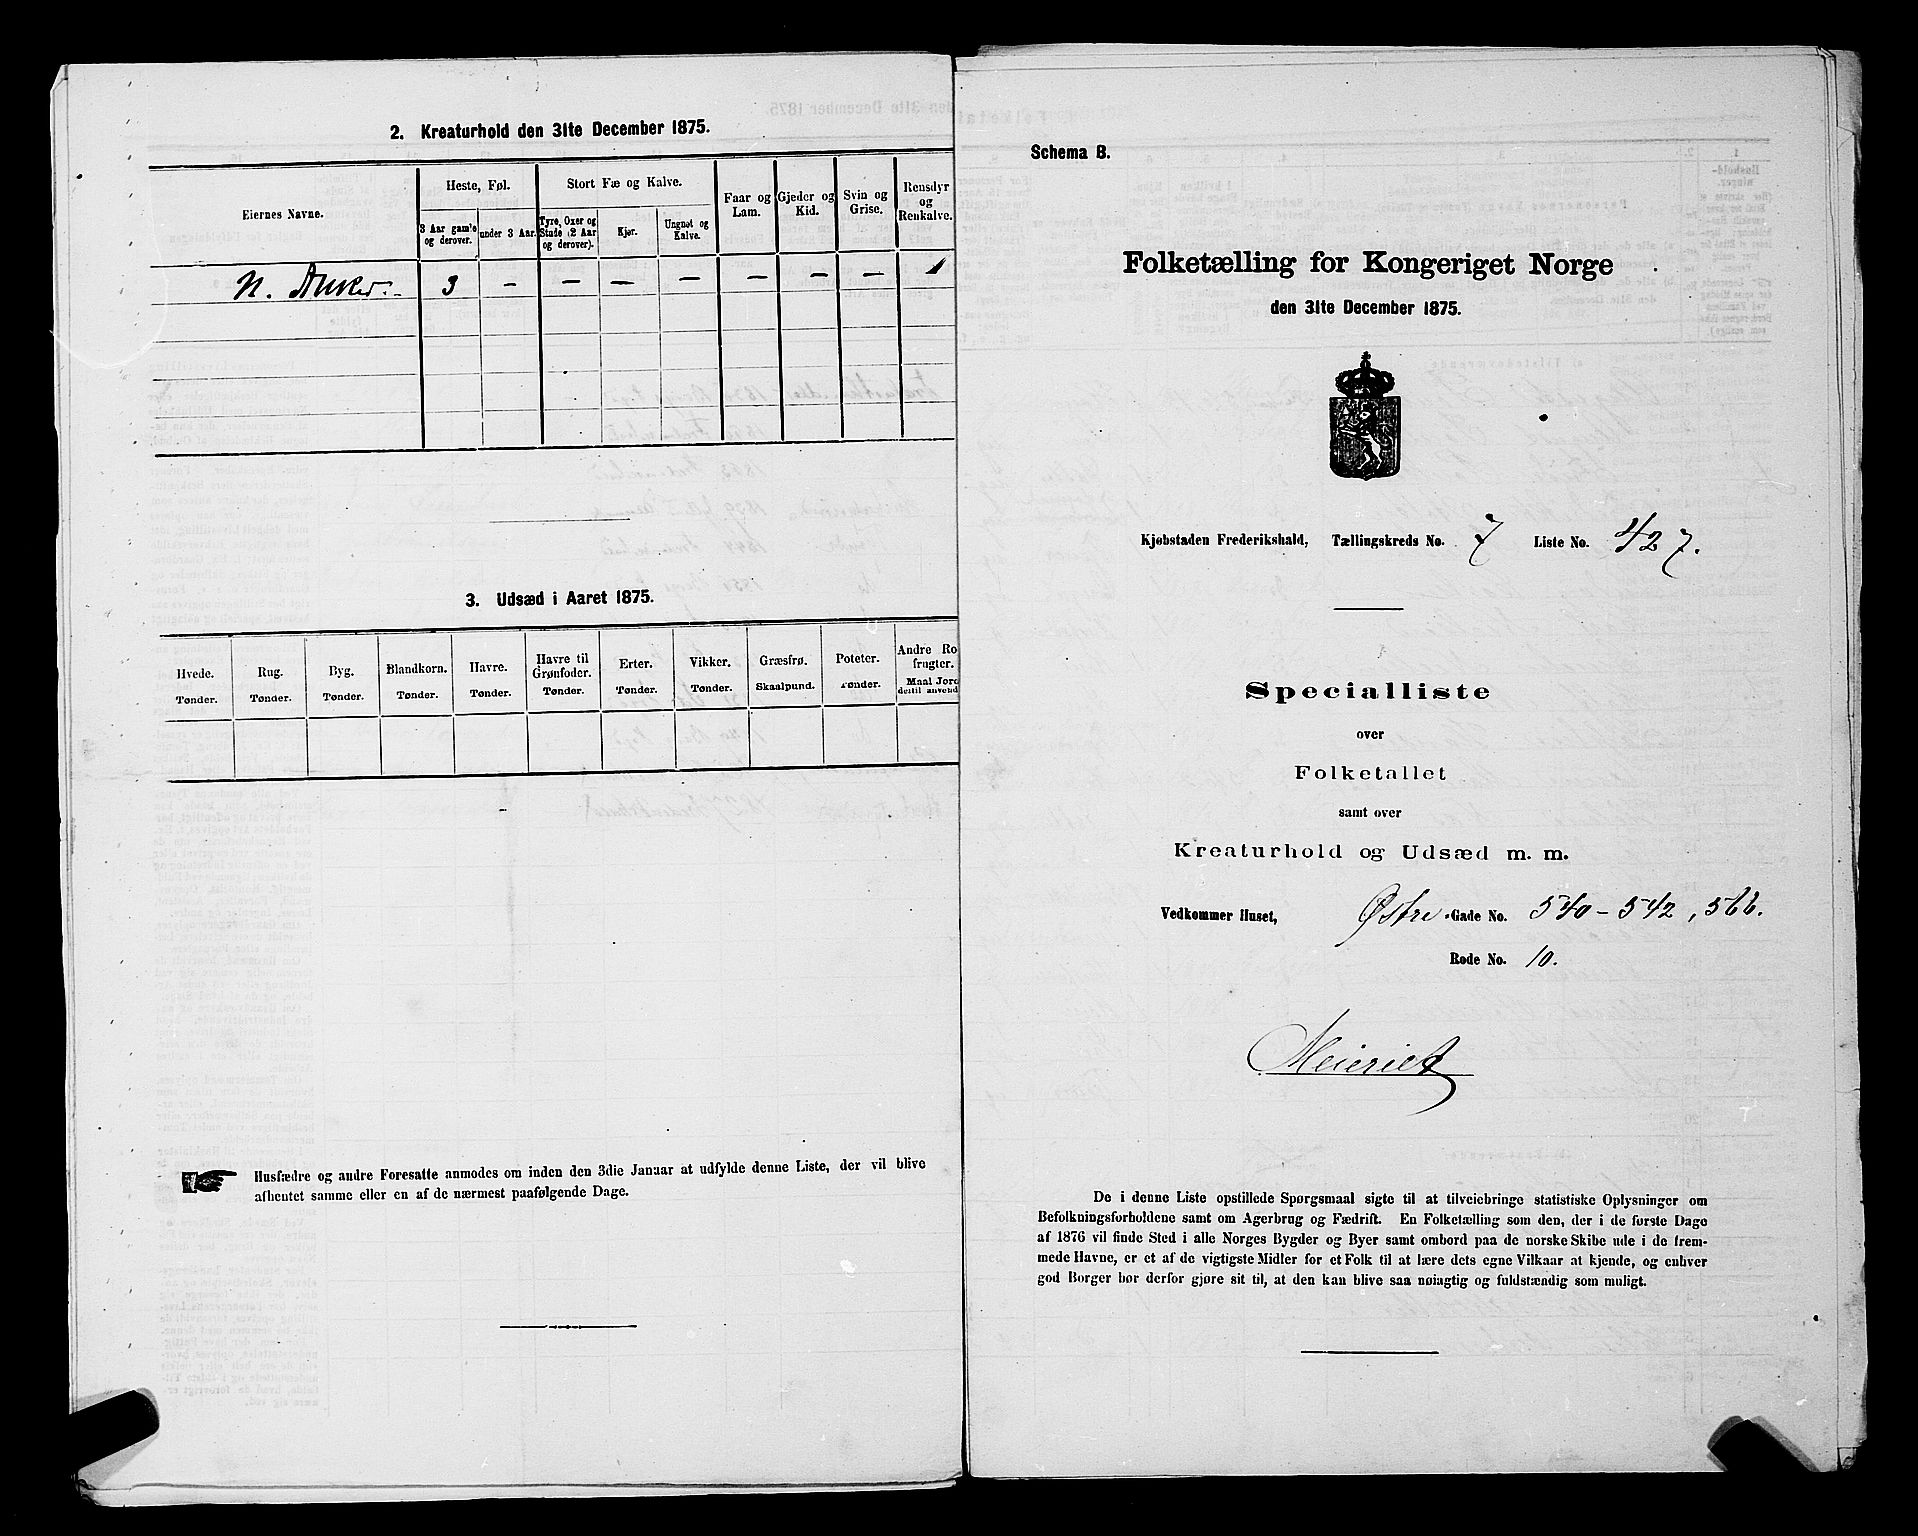 2. Kreaturhold den 31te December 1875.
Eiernes Navne.
Heste, Føl.
3 Aar gamle og derover.
under 3 Aar.
Stort Fæ og Kalve.
Tyre, Oxer og Stude (2 Aar og derover).
Kjør.
Ungnøt og Kalve.
Faar og Lam.
Gjeder og Kid.
Svin og Grise.
Rensdyr og Renkalve.
N. Anker. 3 – – – – – – –
3. Udsæd i Aaret 1875.
Hvede. Tønder.
Rug. Tønder.
Byg. Tønder.
Blandkorn. Tønder.
Havre. Tønder.
Havre til Grønfoder. Tønder.
Erter. Tønder.
Vikker. Tønder.
Græsfrø. Skaalpund.
Poteter. Tønder.
Andre Ro frugter. Maal Jord dertil anvend
Husfædre og andre Foresatte anmodes om inden den 3die Januar at udfylde denne Liste, der vil blive
afhentet samme eller en af de nærmest paafølgende Dage.
Schema B.
Folketælling for Kongeriget Norge
den 31te December 1875.
Kjøbstaden Frederikshald, Tællingskreds No. 7 Liste No. 427.
Specialliste
over
Folketallet
samt over
Kreaturhold og Udsæd m. m.
Vedkommer Huset, Østre Gade No. 540-542, 566.
Rode No. 10.
Meieriet
De i denne Liste opstillede Spørgsmaal sigte til at tilveiebringe statistiske Oplysninger om
Befolkningsforholdene samt om Agerbrug og Fædrift. En Folketælling som den, der i de første Dage
af 1876 vil finde Sted i alle Norges Bygder og Byer samt ombord paa de norske Skibe ude i de frem-
mede Havne, er et af de vigtigste Midler for et Folk til at lære dets egne Vilkaar at kjende, og enhver
god Borger bør derfor gjøre sit til, at den kan blive saa nøiagtig og fuldstændig som muligt.